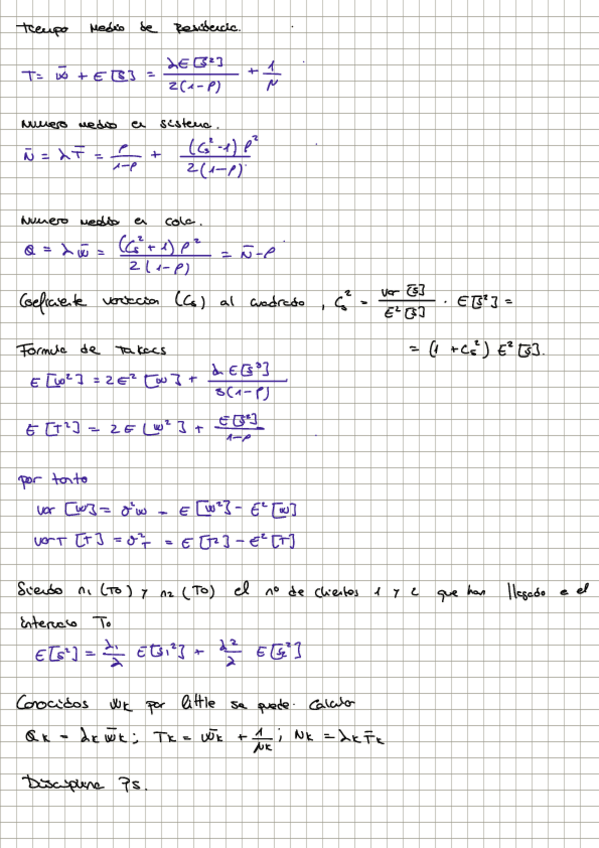 Tiempo Medio de Residencia.
T = w̄ + E[s] = λE[s²] / 2(1-ρ) + 1/μ
Numero medio en sistema.
N̄ = λT̄ = ρ/(1-ρ) + (Cs²-1)ρ² / 2(1-ρ)
Numero medio en cola.
Q = λw̄ = (Cs²+1)ρ² / 2(1-ρ) = N̄-ρ
Coeficiente variacion (Cs) al cuadrado, Cs² = var[s] / E²[s] · E[s²] =
= (1+Cs²) E²[s].
Formula de Takacs
E[w²] = 2E²[w] + λE[s³] / 3(1-ρ)
E[T²] = 2E[w²] + E[s²] / 1-ρ
por tanto
var[w] = σ²w = E[w²] - E²[w]
varT[T] = σ²T = E[T²] - E²[T]
Siendo n1(To) y n2(To) el nº de clientes 1 y 2 que han llegado e el
intervalo To
E[s²] = λ1/λ E[s1²] + λ2/λ E[s2²]
Conocidos w̄k por little se puede. Calcular
Qk = λk w̄k; Tk = w̄k + 1/μk; Nk = λk T̄k
Disciplina Ps.